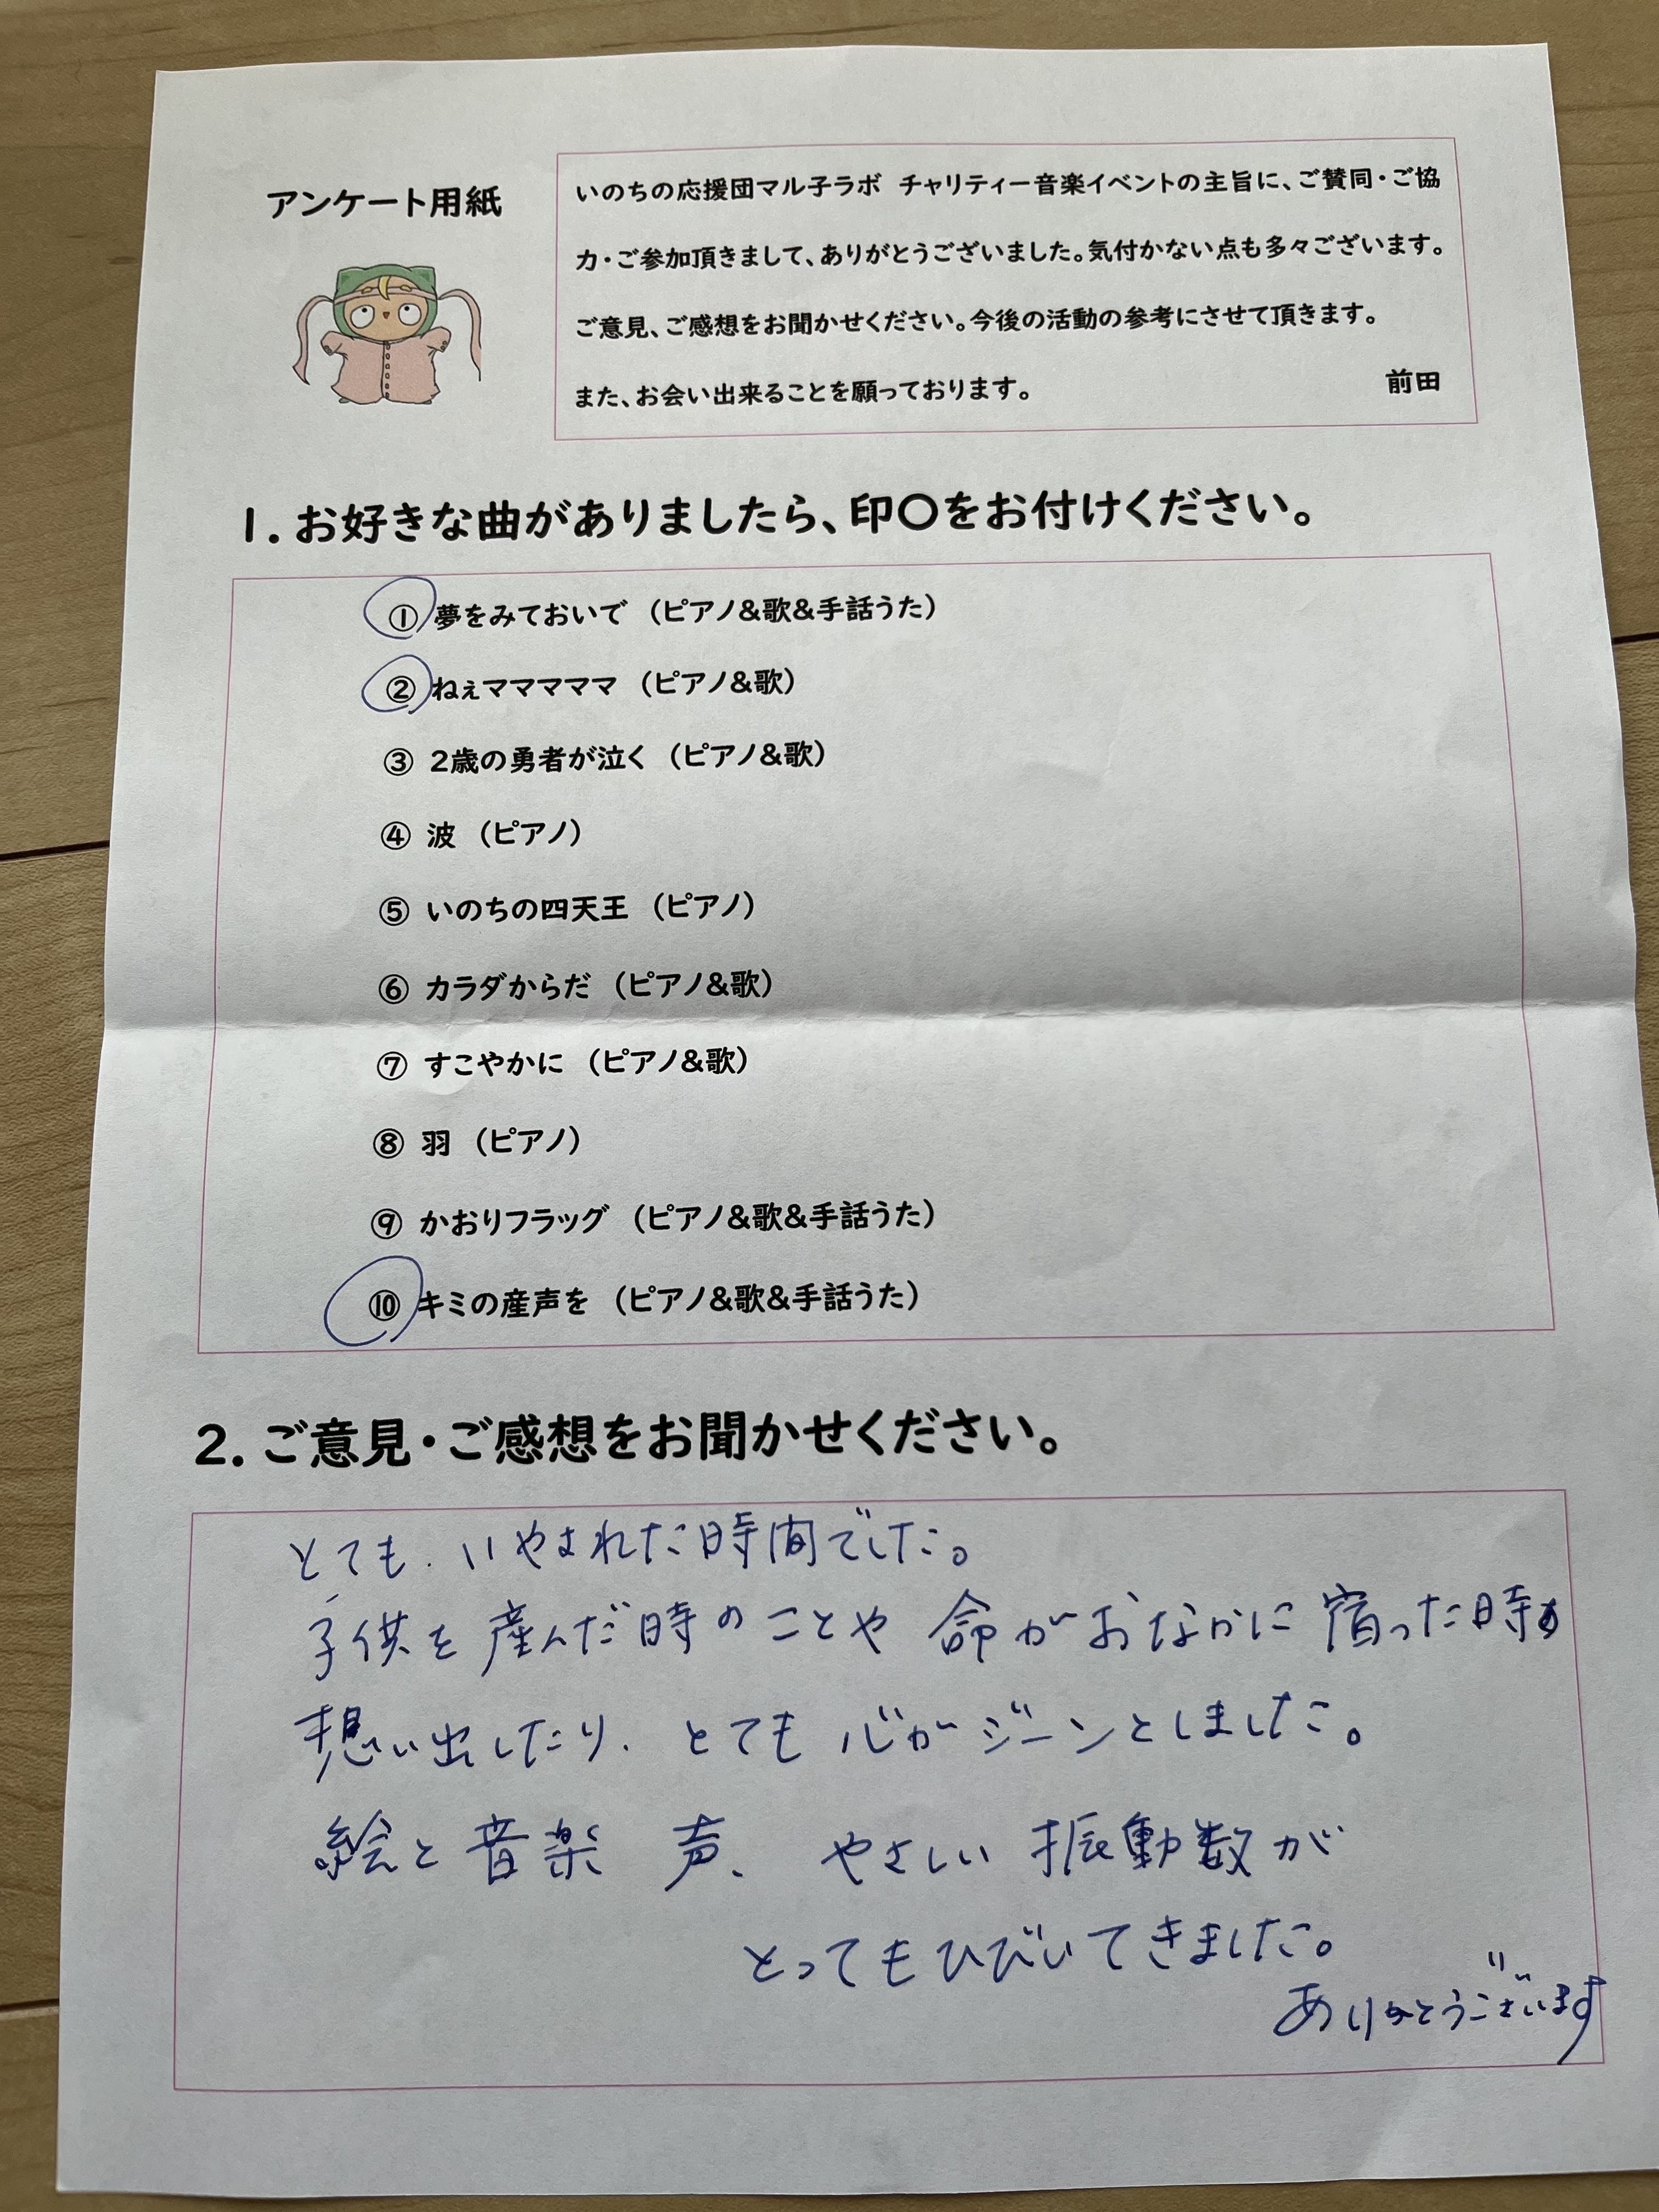 アンケート用紙
いのちの応援団マル子ラボ チャリティー音楽イベントの主旨に、ご賛同・ご協
力・ご参加頂きまして、ありがとうございました。気付かない点も多々ございます。
ご意見、ご感想をお聞かせください。今後の活動の参考にさせて頂きます。
また、お会い出来ることを願っております。 前田
1. お好きな曲がありましたら、印〇をお付けください。
① 夢をみておいで （ピアノ&歌&手話うた）
② ねぇママママママ （ピアノ&歌）
③ 2歳の勇者が泣く （ピアノ&歌）
④ 波 （ピアノ）
⑤ いのちの四天王 （ピアノ）
⑥ カラダからだ （ピアノ&歌）
⑦ すこやかに （ピアノ&歌）
⑧ 羽 （ピアノ）
⑨ かおりフラッグ （ピアノ&歌&手話うた）
⑩ キミの産声を （ピアノ&歌&手話うた）
2. ご意見・ご感想をお聞かせください。
とても、いやされた時間でした。
子供を産んだ時のことや 命がおなかに宿った時
想い出したり、とても心がジーンとしました。
絵と音楽 声、 やさしい振動数が
とってもひびいてきました。
ありがとうございます